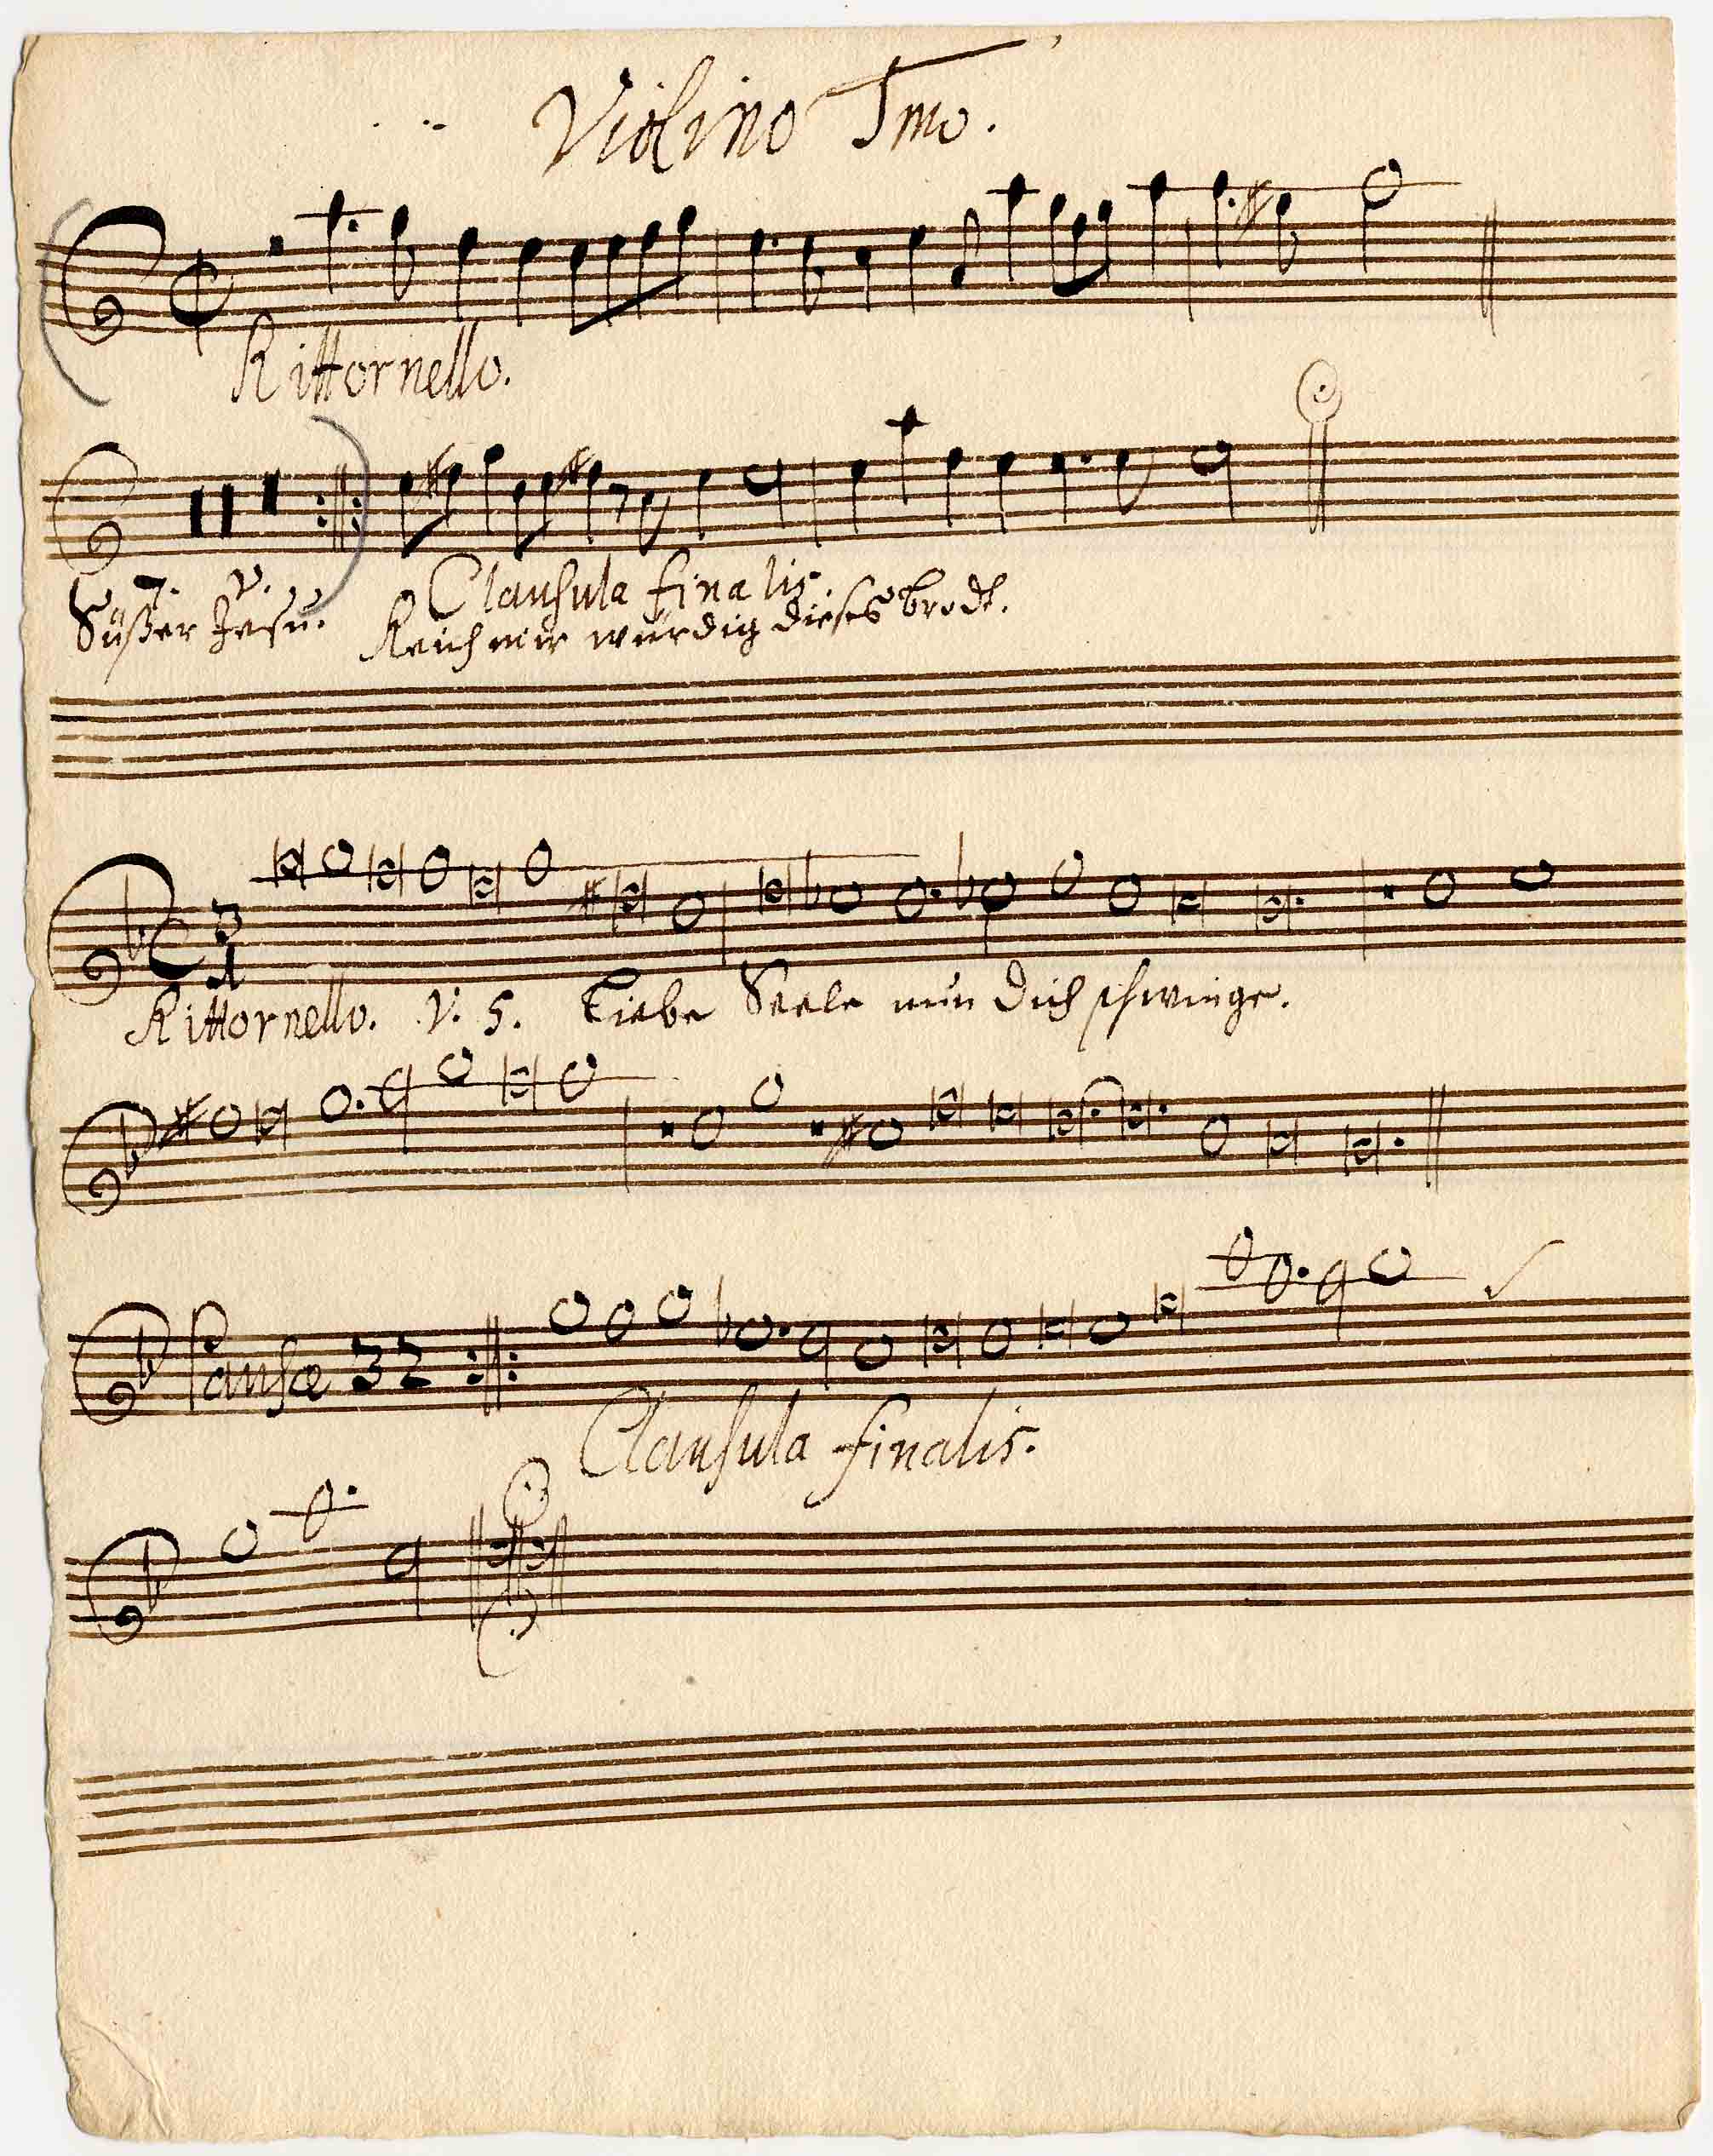 Violino Imo.
Rittornello.
7. V. Clausula finalis.
Süßer Jesu. Reich mir würdig dieses brodt.
3
1
Rittornello. V. 5. Liebe Seele nun dich schwinge.
Pausæ 32
Clausula finalis.